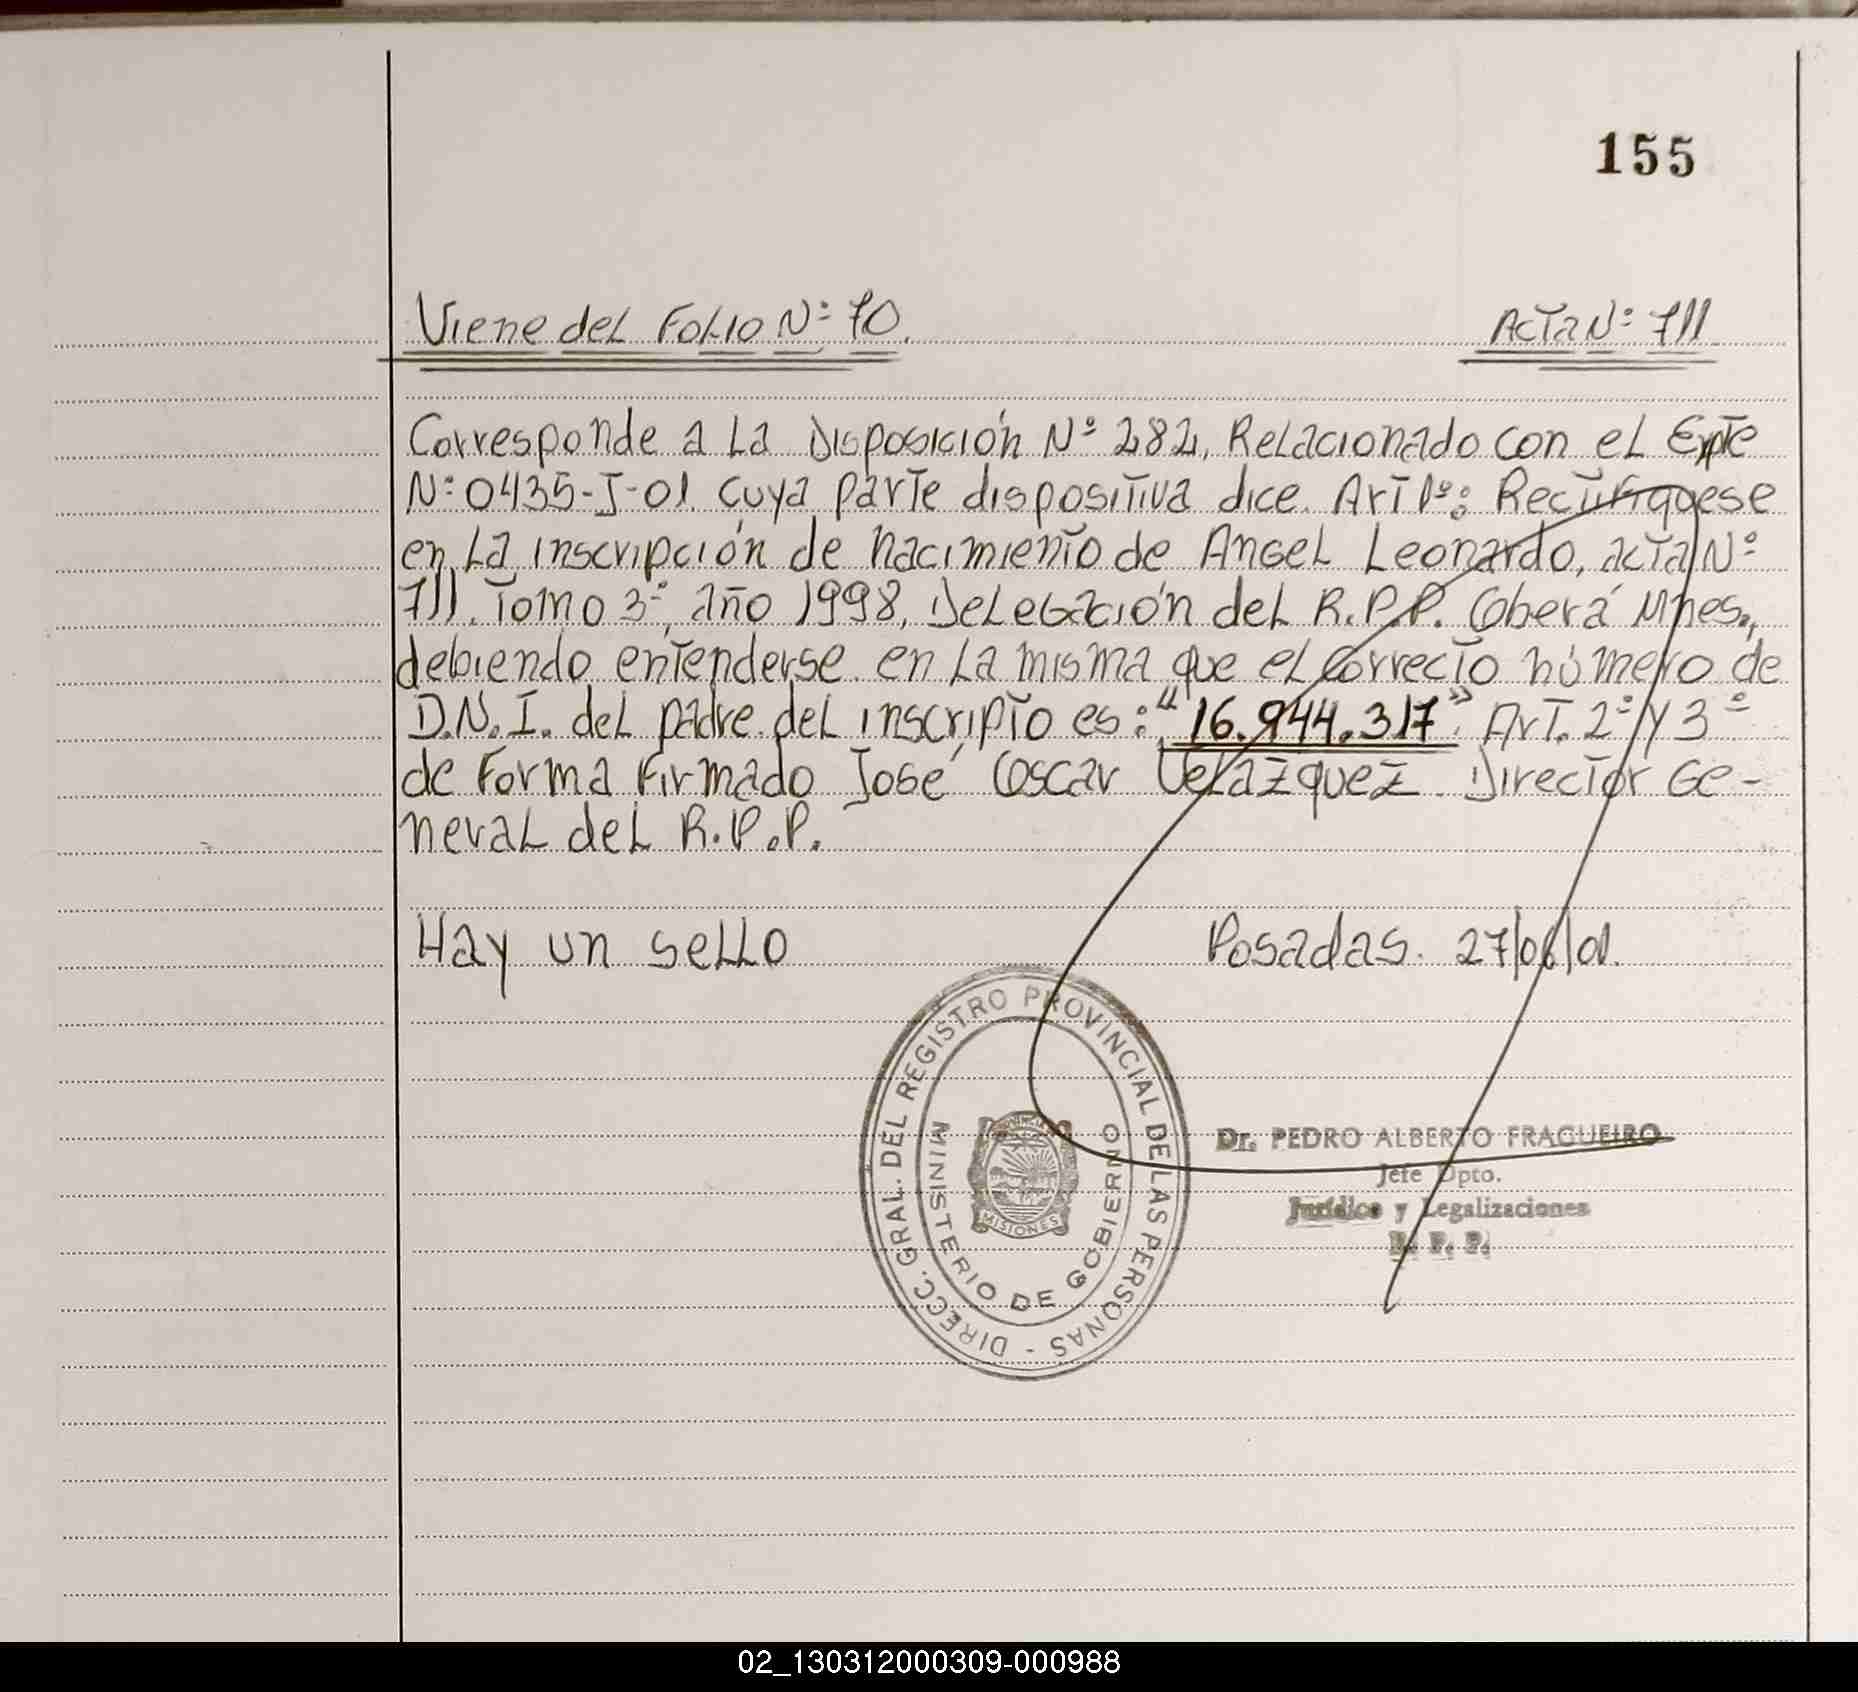 155
Viene del Folio Nº 70. Acta Nº 711
Corresponde a la Disposición Nº 282, Relacionado con el Expte
Nº 0435-J-01. Cuya parte dispositiva dice. Art 1º: Rectifiquese
en la inscripción de nacimiento de Angel Leonardo, acta Nº
711. Tomo 3º, año 1998, Delegación del R.P.P. Oberá Mnes.,
debiendo entenderse en la misma que el correcto número de
D.N.I. del padre del inscripto es: "16.944.317". Art. 2º y 3º
de forma firmado José Oscar Velazquez. Director Ge-
neral del R.P.P.
Hay un sello Posadas. 27/06/01.
DIRECC. GRAL. DEL REGISTRO PROVINCIAL DE LAS PERSONAS -
MINISTERIO DE GOBIERNO
MISIONES
Dr. PEDRO ALBERTO FRAGUEIRO
Jefe Dpto.
Jurídico y Legalizaciones
R. P. P.
02_130312000309-000988